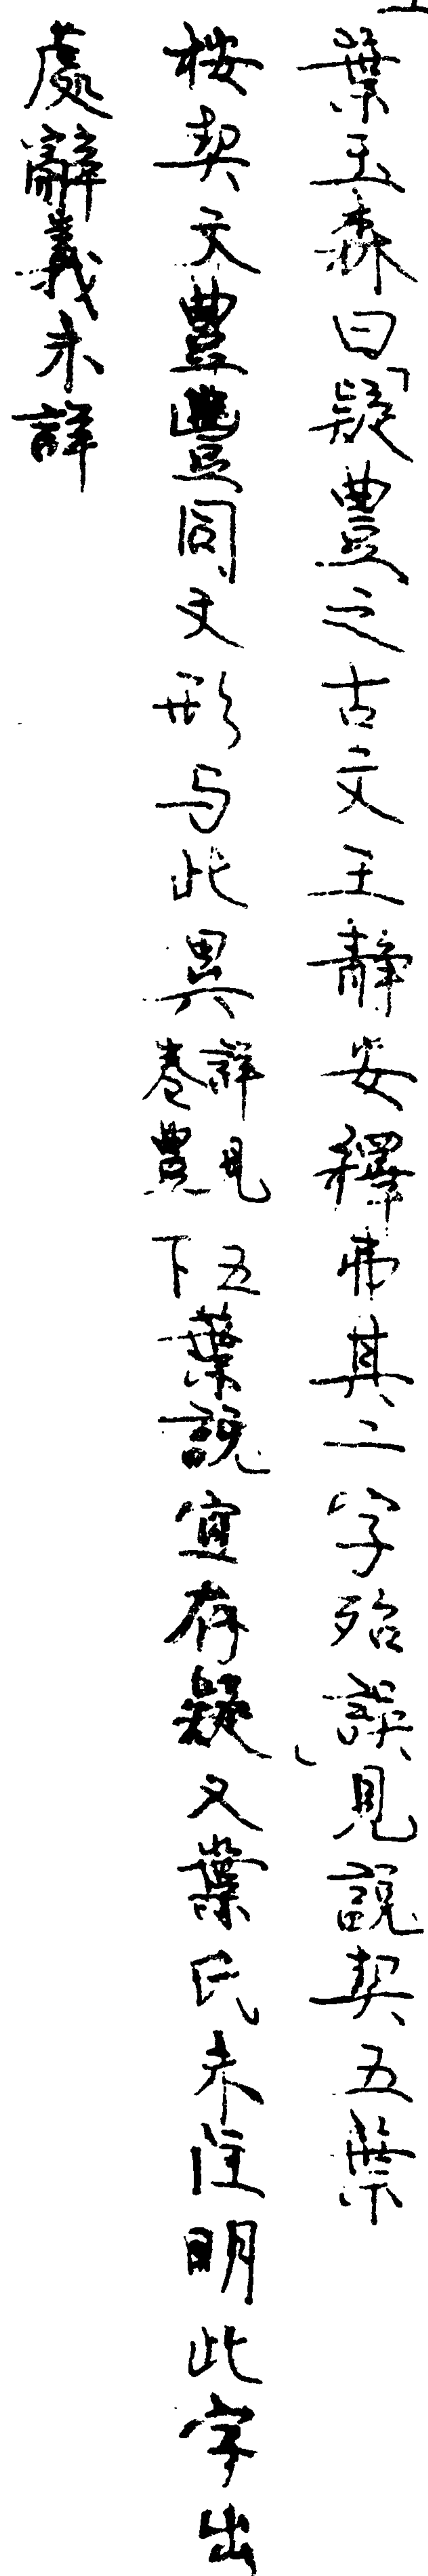 葉玉森曰「疑豊之古文王静安釋弗其二字殆誤」見說契五葉
按契文豊豐同文形与此異詳見五卷豐下葉說宜存疑又葉氏未注明此字出
處辭義未詳